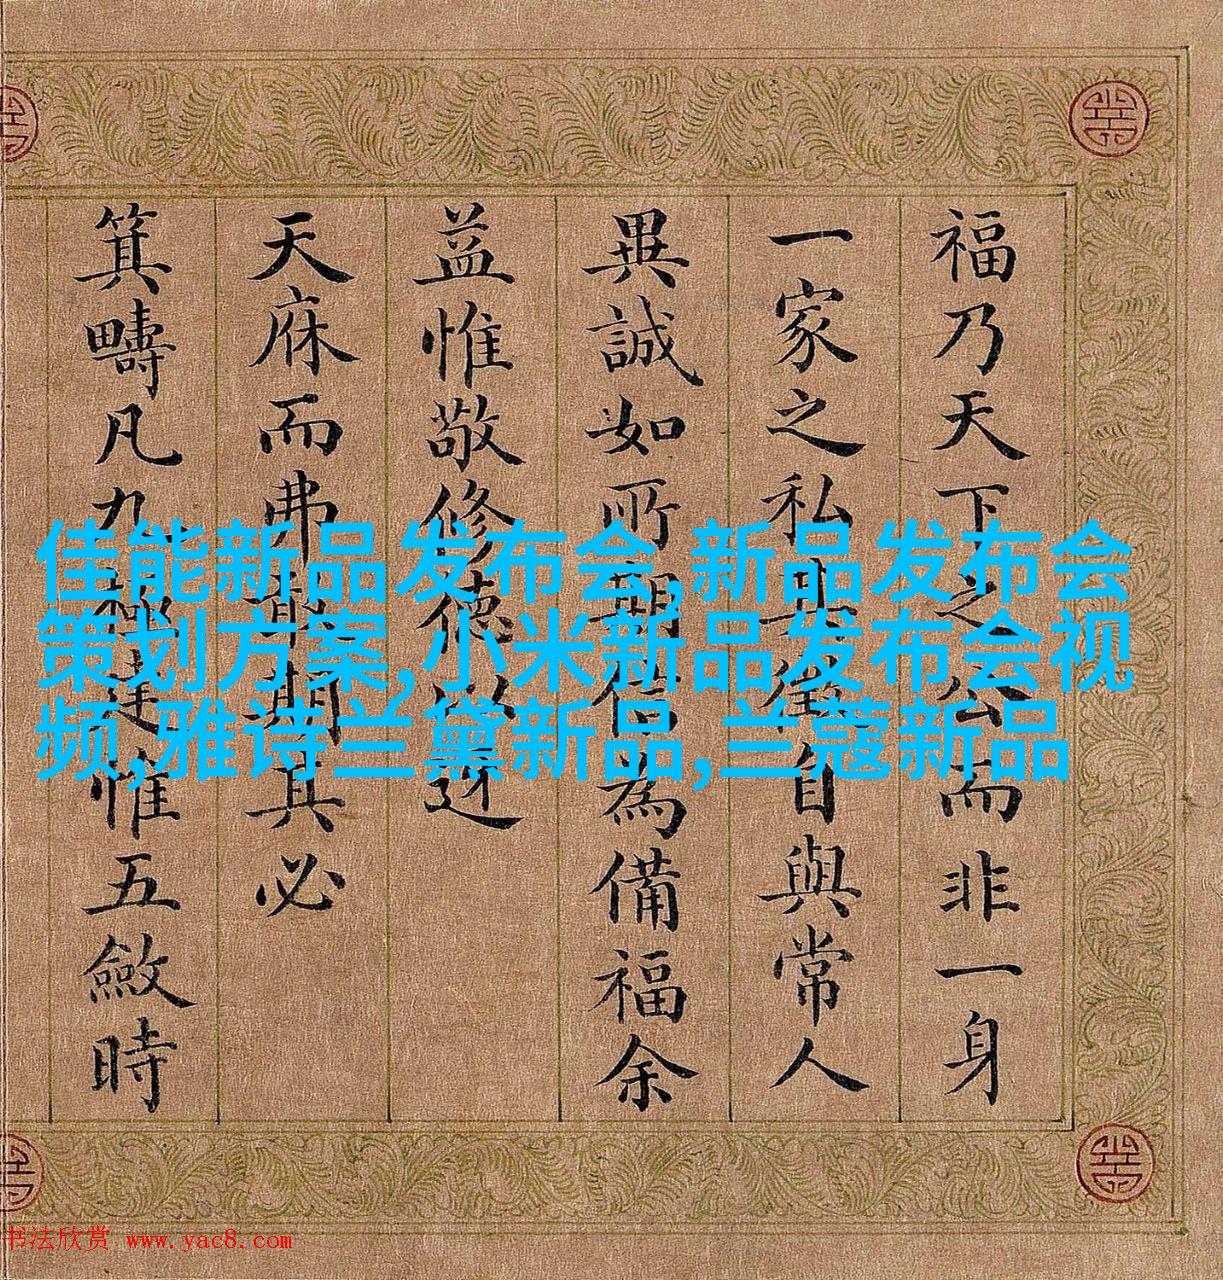 福乃天下之公而非一身
一家之私其徵自與常人
異誠如所期信為備福余
益惟敬修德以迓
天庥而弗敢期其必
箕疇凡九極建惟五斂時
佳能新品发布会,新品发布会
策划方案,小米新品发布会视
频,雅诗兰黛新品,兰蔻新品
书法欣赏 www.yac8.com